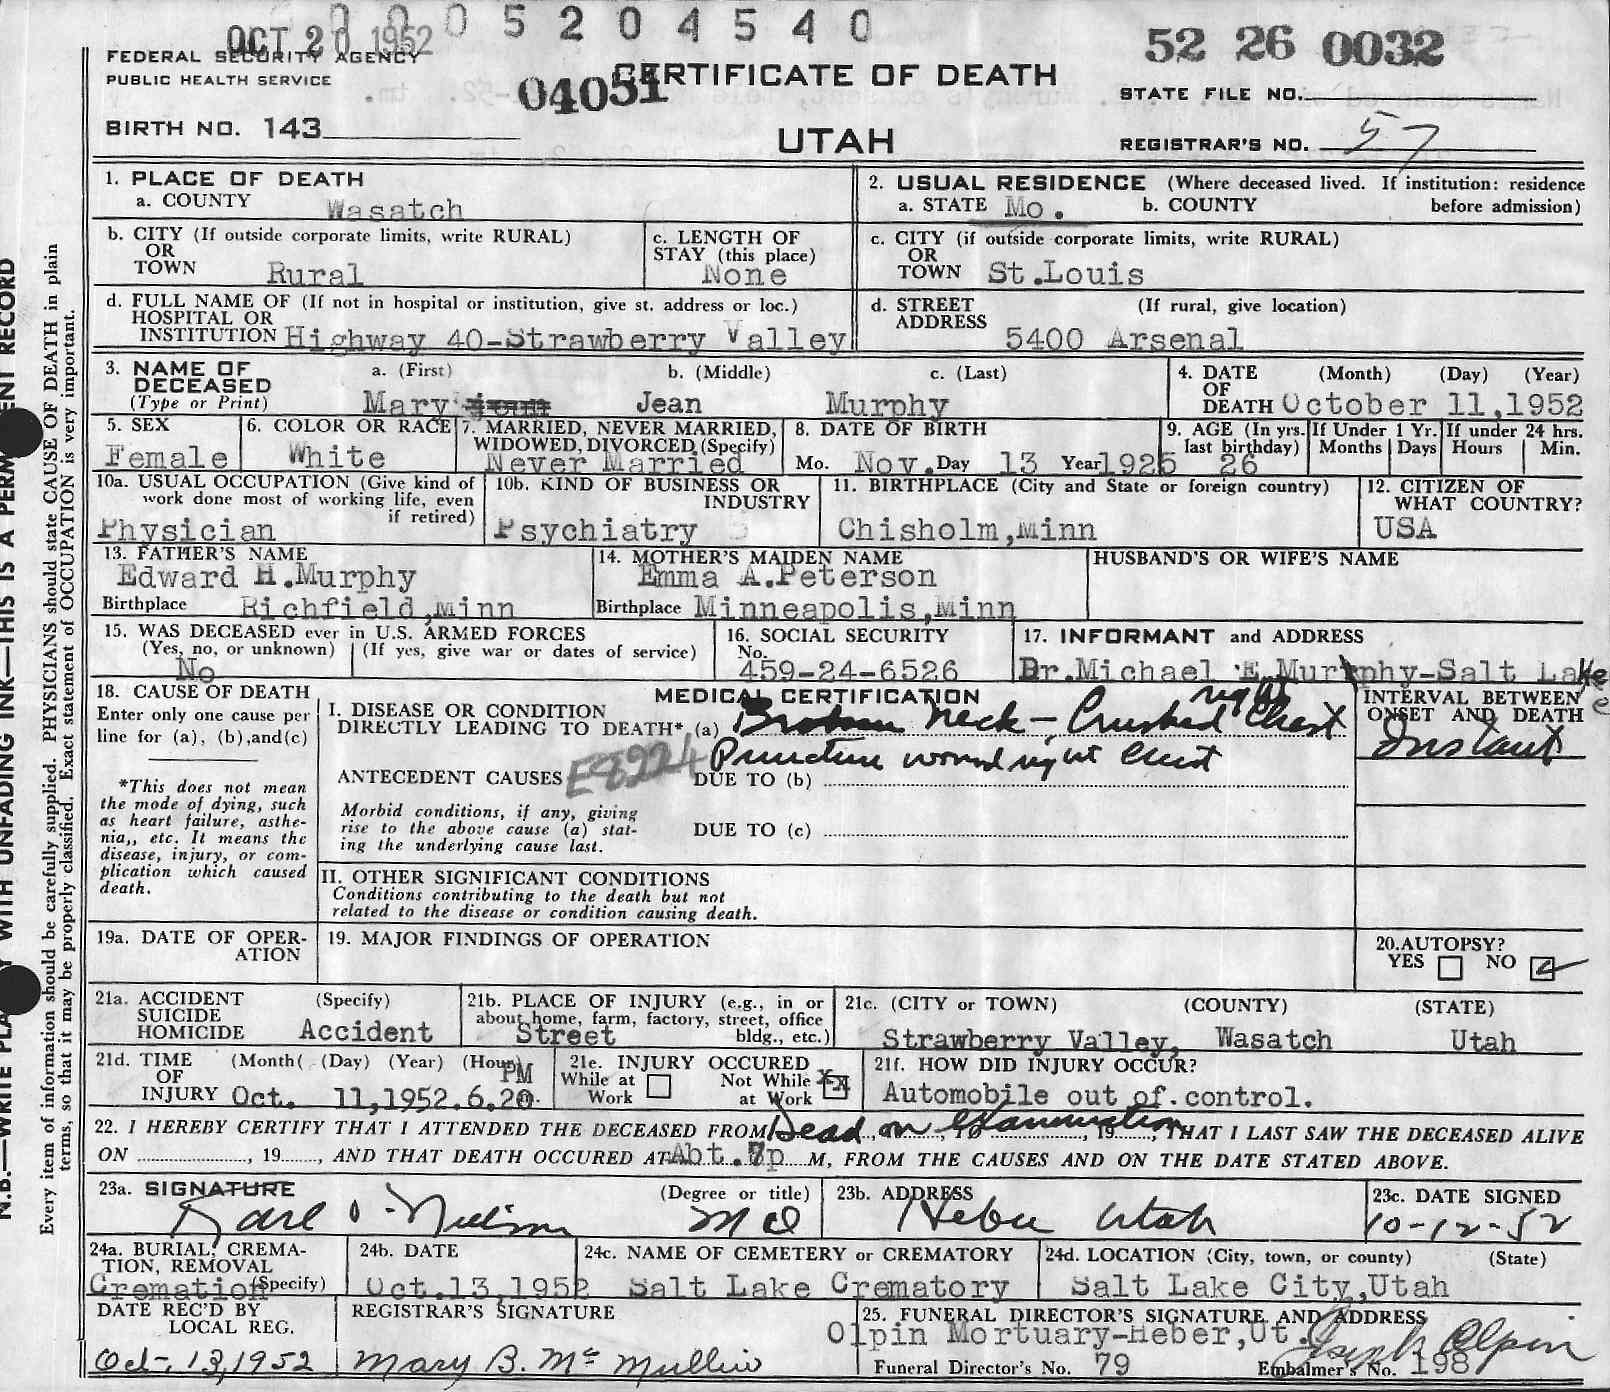 0 0 0 5 2 0 4 5 4 0
OCT 20 1952
52 26 0032
FEDERAL SECURITY AGENCY
PUBLIC HEALTH SERVICE
04051
CERTIFICATE OF DEATH
STATE FILE NO.
BIRTH NO. 143
UTAH
REGISTRAR'S NO. 57
1. PLACE OF DEATH
a. COUNTY Wasatch
2. USUAL RESIDENCE (Where deceased lived. If institution: residence before admission)
a. STATE Mo. b. COUNTY
b. CITY (If outside corporate limits, write RURAL)
OR
TOWN Rural
c. LENGTH OF
STAY (this place)
None
c. CITY (if outside corporate limits, write RURAL)
OR
TOWN St.Louis
d. FULL NAME OF (If not in hospital or institution, give st. address or loc.)
HOSPITAL OR
INSTITUTION Highway 40-Strawberry Valley
d. STREET (If rural, give location)
ADDRESS 5400 Arsenal
3. NAME OF DECEASED
(Type or Print)
a. (First) b. (Middle) c. (Last)
Mary Jean Murphy
4. DATE (Month) (Day) (Year)
OF
DEATH October 11,1952
5. SEX
Female
6. COLOR OR RACE
White
7. MARRIED, NEVER MARRIED,
WIDOWED, DIVORCED (Specify)
Never Married
8. DATE OF BIRTH
Mo. Nov. Day 13 Year 1925
9. AGE (In yrs. last birthday)
26
If Under 1 Yr.
Months Days
If under 24 hrs.
Hours Min.
10a. USUAL OCCUPATION (Give kind of
work done most of working life, even
if retired)
Physician
10b. KIND OF BUSINESS OR
INDUSTRY
Psychiatry
11. BIRTHPLACE (City and State or foreign country)
Chisholm,Minn
12. CITIZEN OF
WHAT COUNTRY?
USA
13. FATHER'S NAME
Edward H.Murphy
Birthplace Richfield,Minn
14. MOTHER'S MAIDEN NAME
Emma A.Peterson
Birthplace Minneapolis,Minn
HUSBAND'S OR WIFE'S NAME
15. WAS DECEASED ever in U.S. ARMED FORCES
(Yes, no, or unknown) (If yes, give war or dates of service)
No
16. SOCIAL SECURITY
No.
459-24-6526
17. INFORMANT and ADDRESS
Dr.Michael E.Murphy-Salt Lake
18. CAUSE OF DEATH
Enter only one cause per
line for (a), (b),and(c)
*This does not mean
the mode of dying, such
as heart failure, asthe-
nia,, etc. It means the
disease, injury, or com-
plication which caused
death.
MEDICAL CERTIFICATION
I. DISEASE OR CONDITION
DIRECTLY LEADING TO DEATH* (a) Broken Neck - Crushed right Chest
Puncture wound right chest
ANTECEDENT CAUSES E8224 DUE TO (b)
Morbid conditions, if any, giving
rise to the above cause (a) stat-
ing the underlying cause last.
DUE TO (c)
II. OTHER SIGNIFICANT CONDITIONS
Conditions contributing to the death but not
related to the disease or condition causing death.
INTERVAL BETWEEN
ONSET AND DEATH
Instant
19a. DATE OF OPER-
ATION
19. MAJOR FINDINGS OF OPERATION
20.AUTOPSY?
YES NO
21a. ACCIDENT (Specify)
SUICIDE
HOMICIDE Accident
21b. PLACE OF INJURY (e.g., in or
about home, farm, factory, street, office
bldg., etc.)
Street
21c. (CITY or TOWN) (COUNTY) (STATE)
Strawberry Valley, Wasatch Utah
21d. TIME (Month( (Day) (Year) (Hour)
OF
INJURY Oct. 11,1952.6.20 PM m.
21e. INJURY OCCURED
While at Work Not While at Work XX
21f. HOW DID INJURY OCCUR?
Automobile out of control.
22. I HEREBY CERTIFY THAT I ATTENDED THE DECEASED FROM Dead on Examination, TO , 19 , THAT I LAST SAW THE DECEASED ALIVE
ON , 19 , AND THAT DEATH OCCURED AT Abt. 7p M, FROM THE CAUSES AND ON THE DATE STATED ABOVE.
23a. SIGNATURE (Degree or title)
Karl O. Nielson M D
23b. ADDRESS
Heber Utah
23c. DATE SIGNED
10-12-52
24a. BURIAL, CREMA-
TION, REMOVAL
Cremation (Specify)
24b. DATE
Oct.13,1952
24c. NAME OF CEMETERY or CREMATORY
Salt Lake Crematory
24d. LOCATION (City, town, or county) (State)
Salt Lake City,Utah
DATE REC'D BY
LOCAL REG.
Oct-13,1952
REGISTRAR'S SIGNATURE
Mary B. McMullin
25. FUNERAL DIRECTOR'S SIGNATURE AND ADDRESS
Olpin Mortuary-Heber,Ut. Joseph Olpin
Funeral Director's No. 79 Embalmer's No. 198
Every item of information should be carefully supplied. PHYSICIANS should state CAUSE OF DEATH in plain
terms, so that it may be properly classified. Exact statement of OCCUPATION is very important.